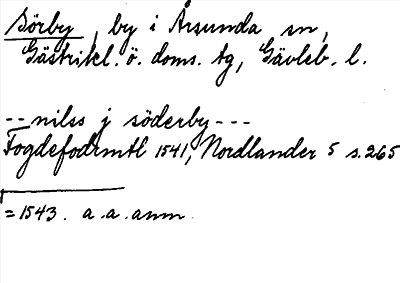 Sörby, by i Årsunda sn,
Gästrikl. ö. doms. tg, Gävleb. l.
-- nilss j söderby ---
Fogdefodrmtl 1541, Nordlander 5 s. 265
= 1543. a. a. anm.